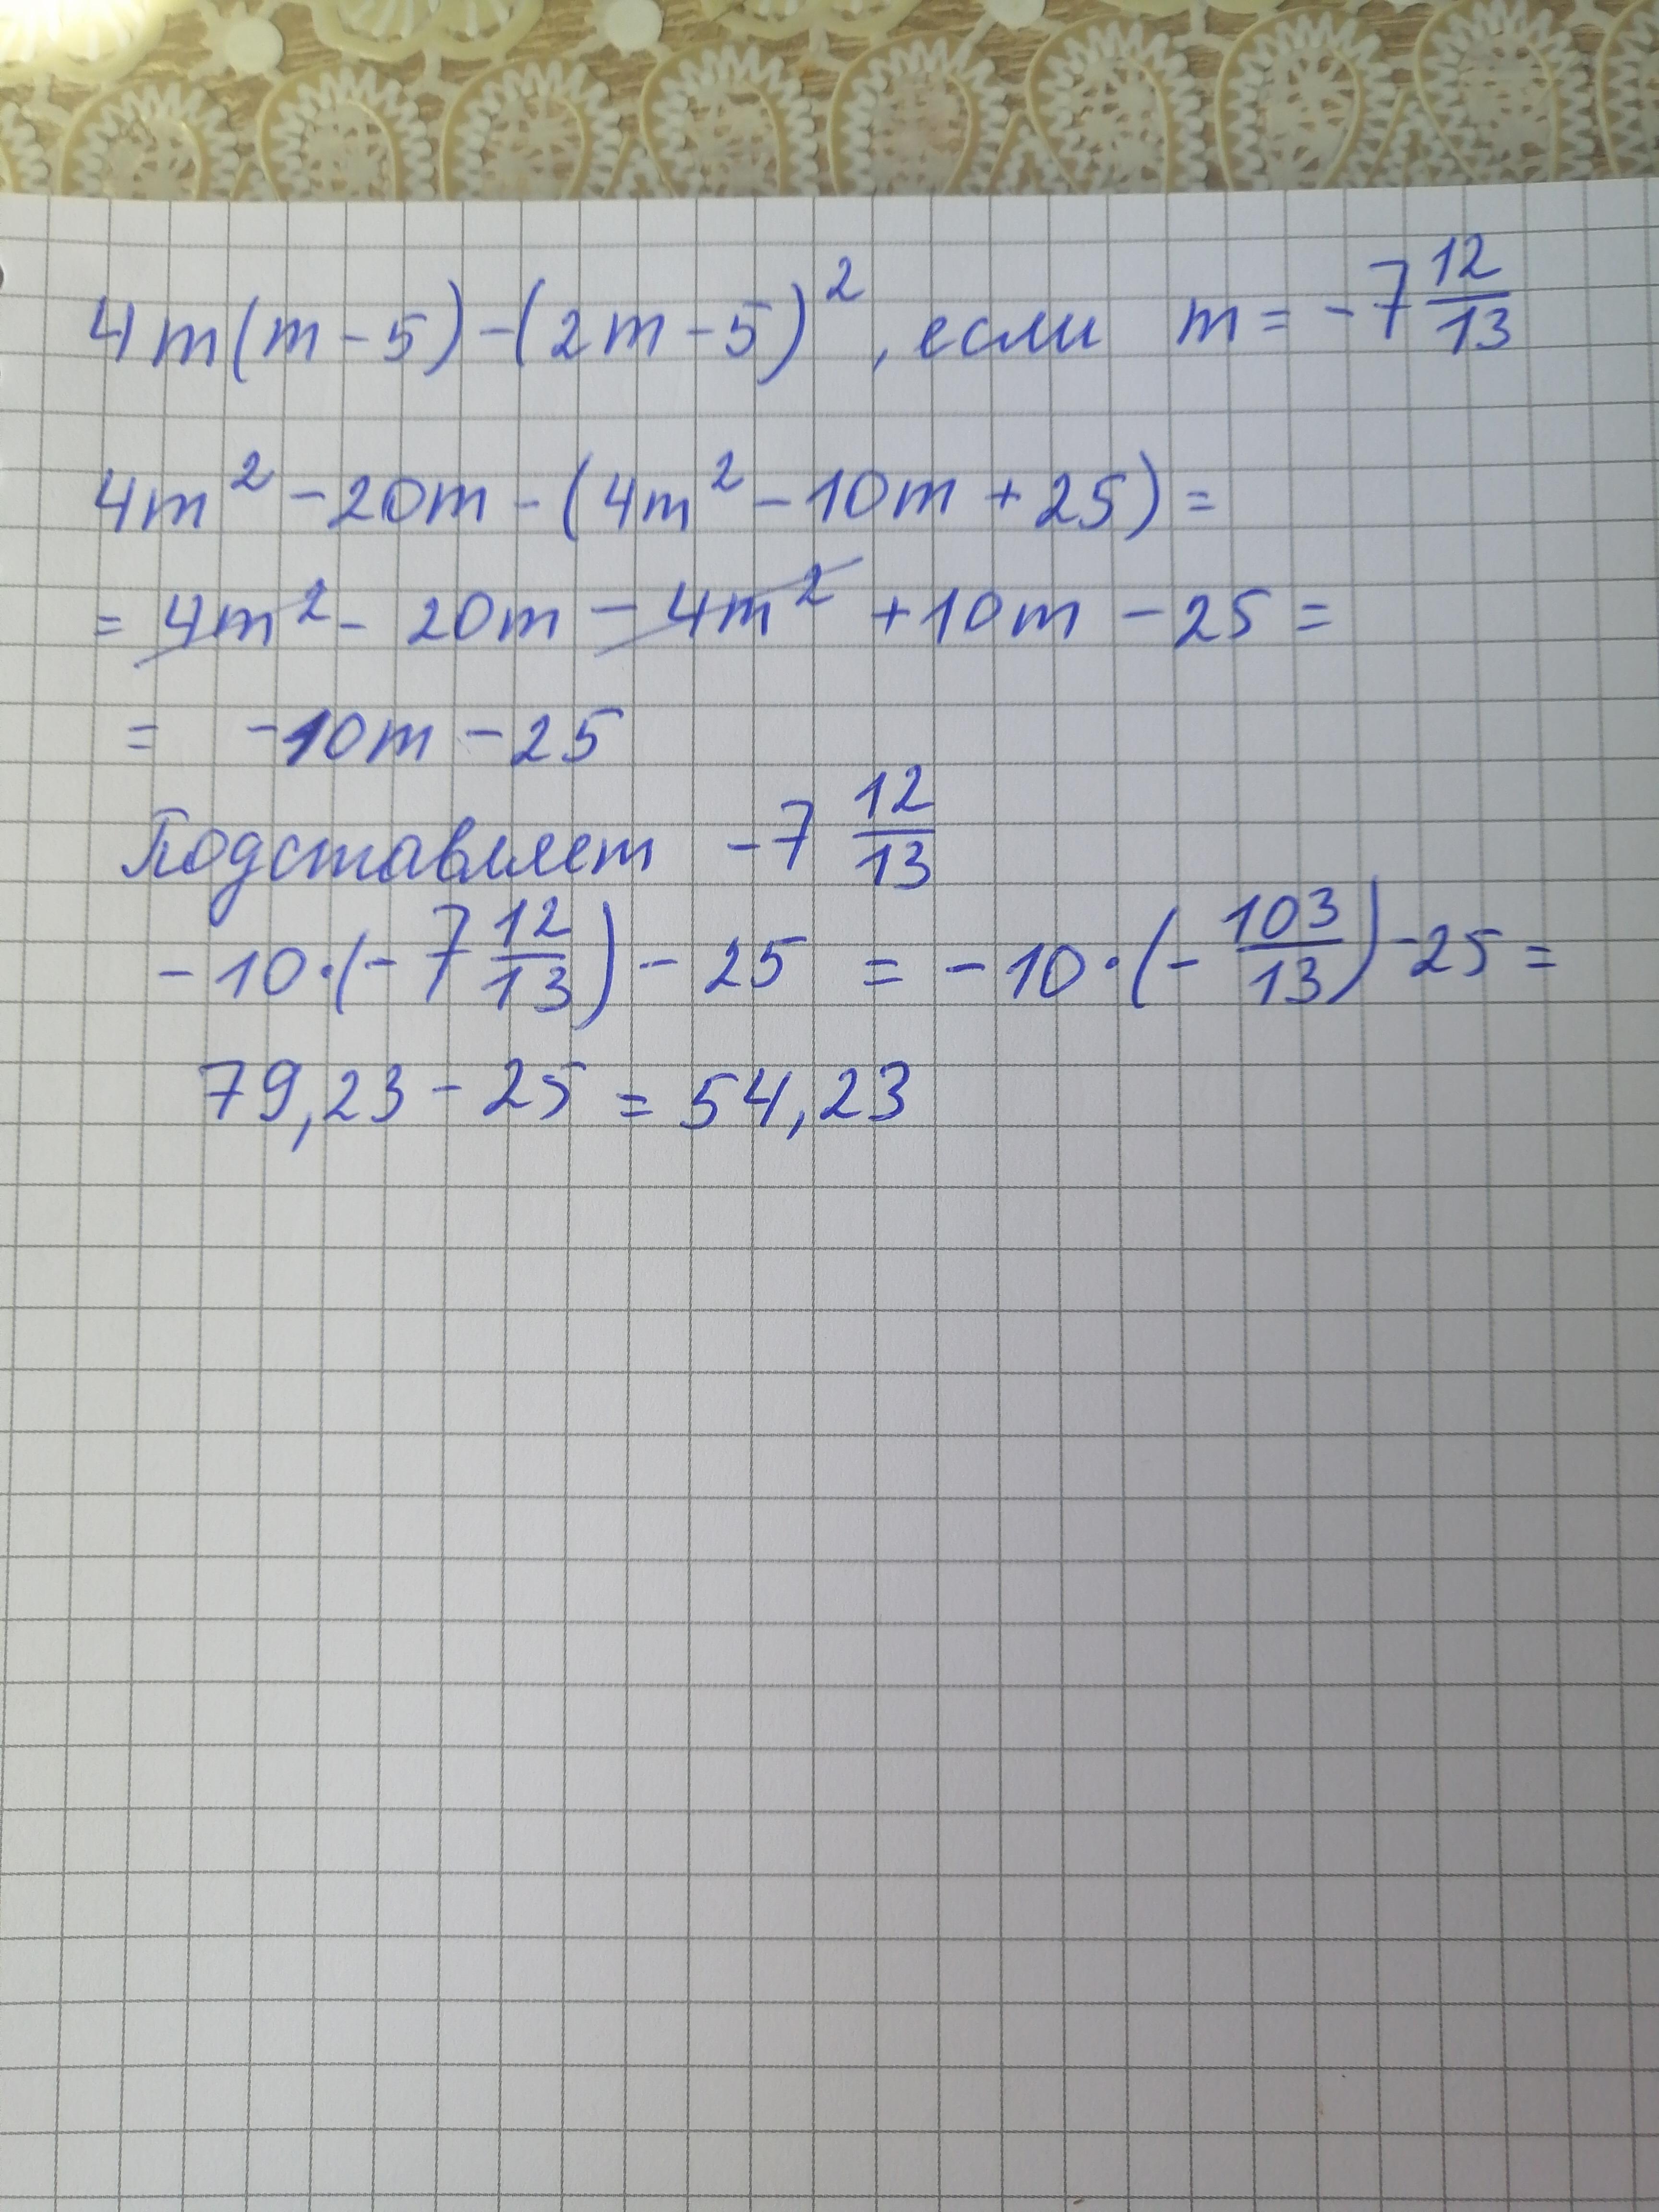 4m(m-5)-(2m-5)², если m = -7 12/13
4m² - 20m - (4m² - 10m + 25) =
= 4m² - 20m - 4m² + 10m - 25 =
= -10m - 25
Подставляем -7 12/13
-10·(-7 12/13) - 25 = -10·(-103/13) - 25 =
79,23 - 25 = 54,23